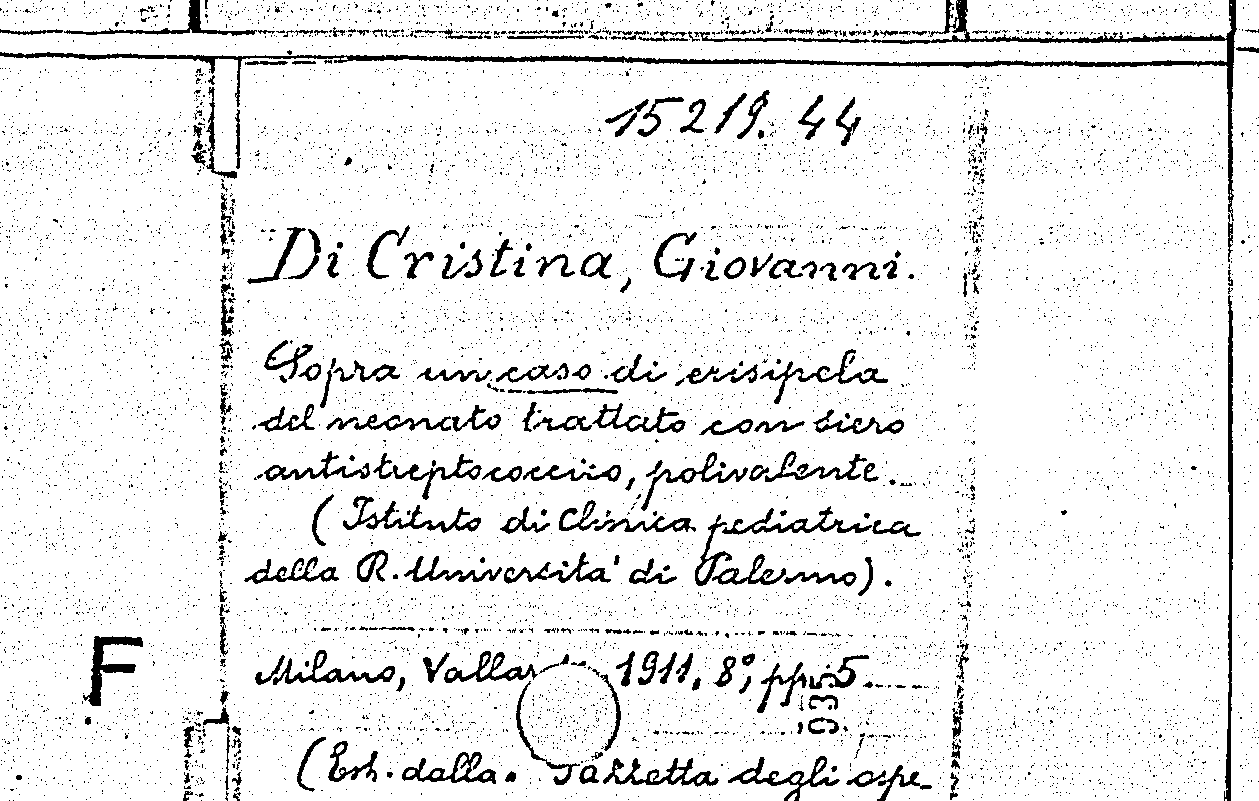 15219. 44
Di Cristina, Giovanni.
Sopra un caso di erisipela
del neonato trattato con siero
antistreptococcico, polivalente.
(Istituto di Clinica pediatrica
della R. Università di Palermo).
F
Milano, 1911, 8°, pp. 5.
(Estr. dalla. Gazzetta degli ospe-